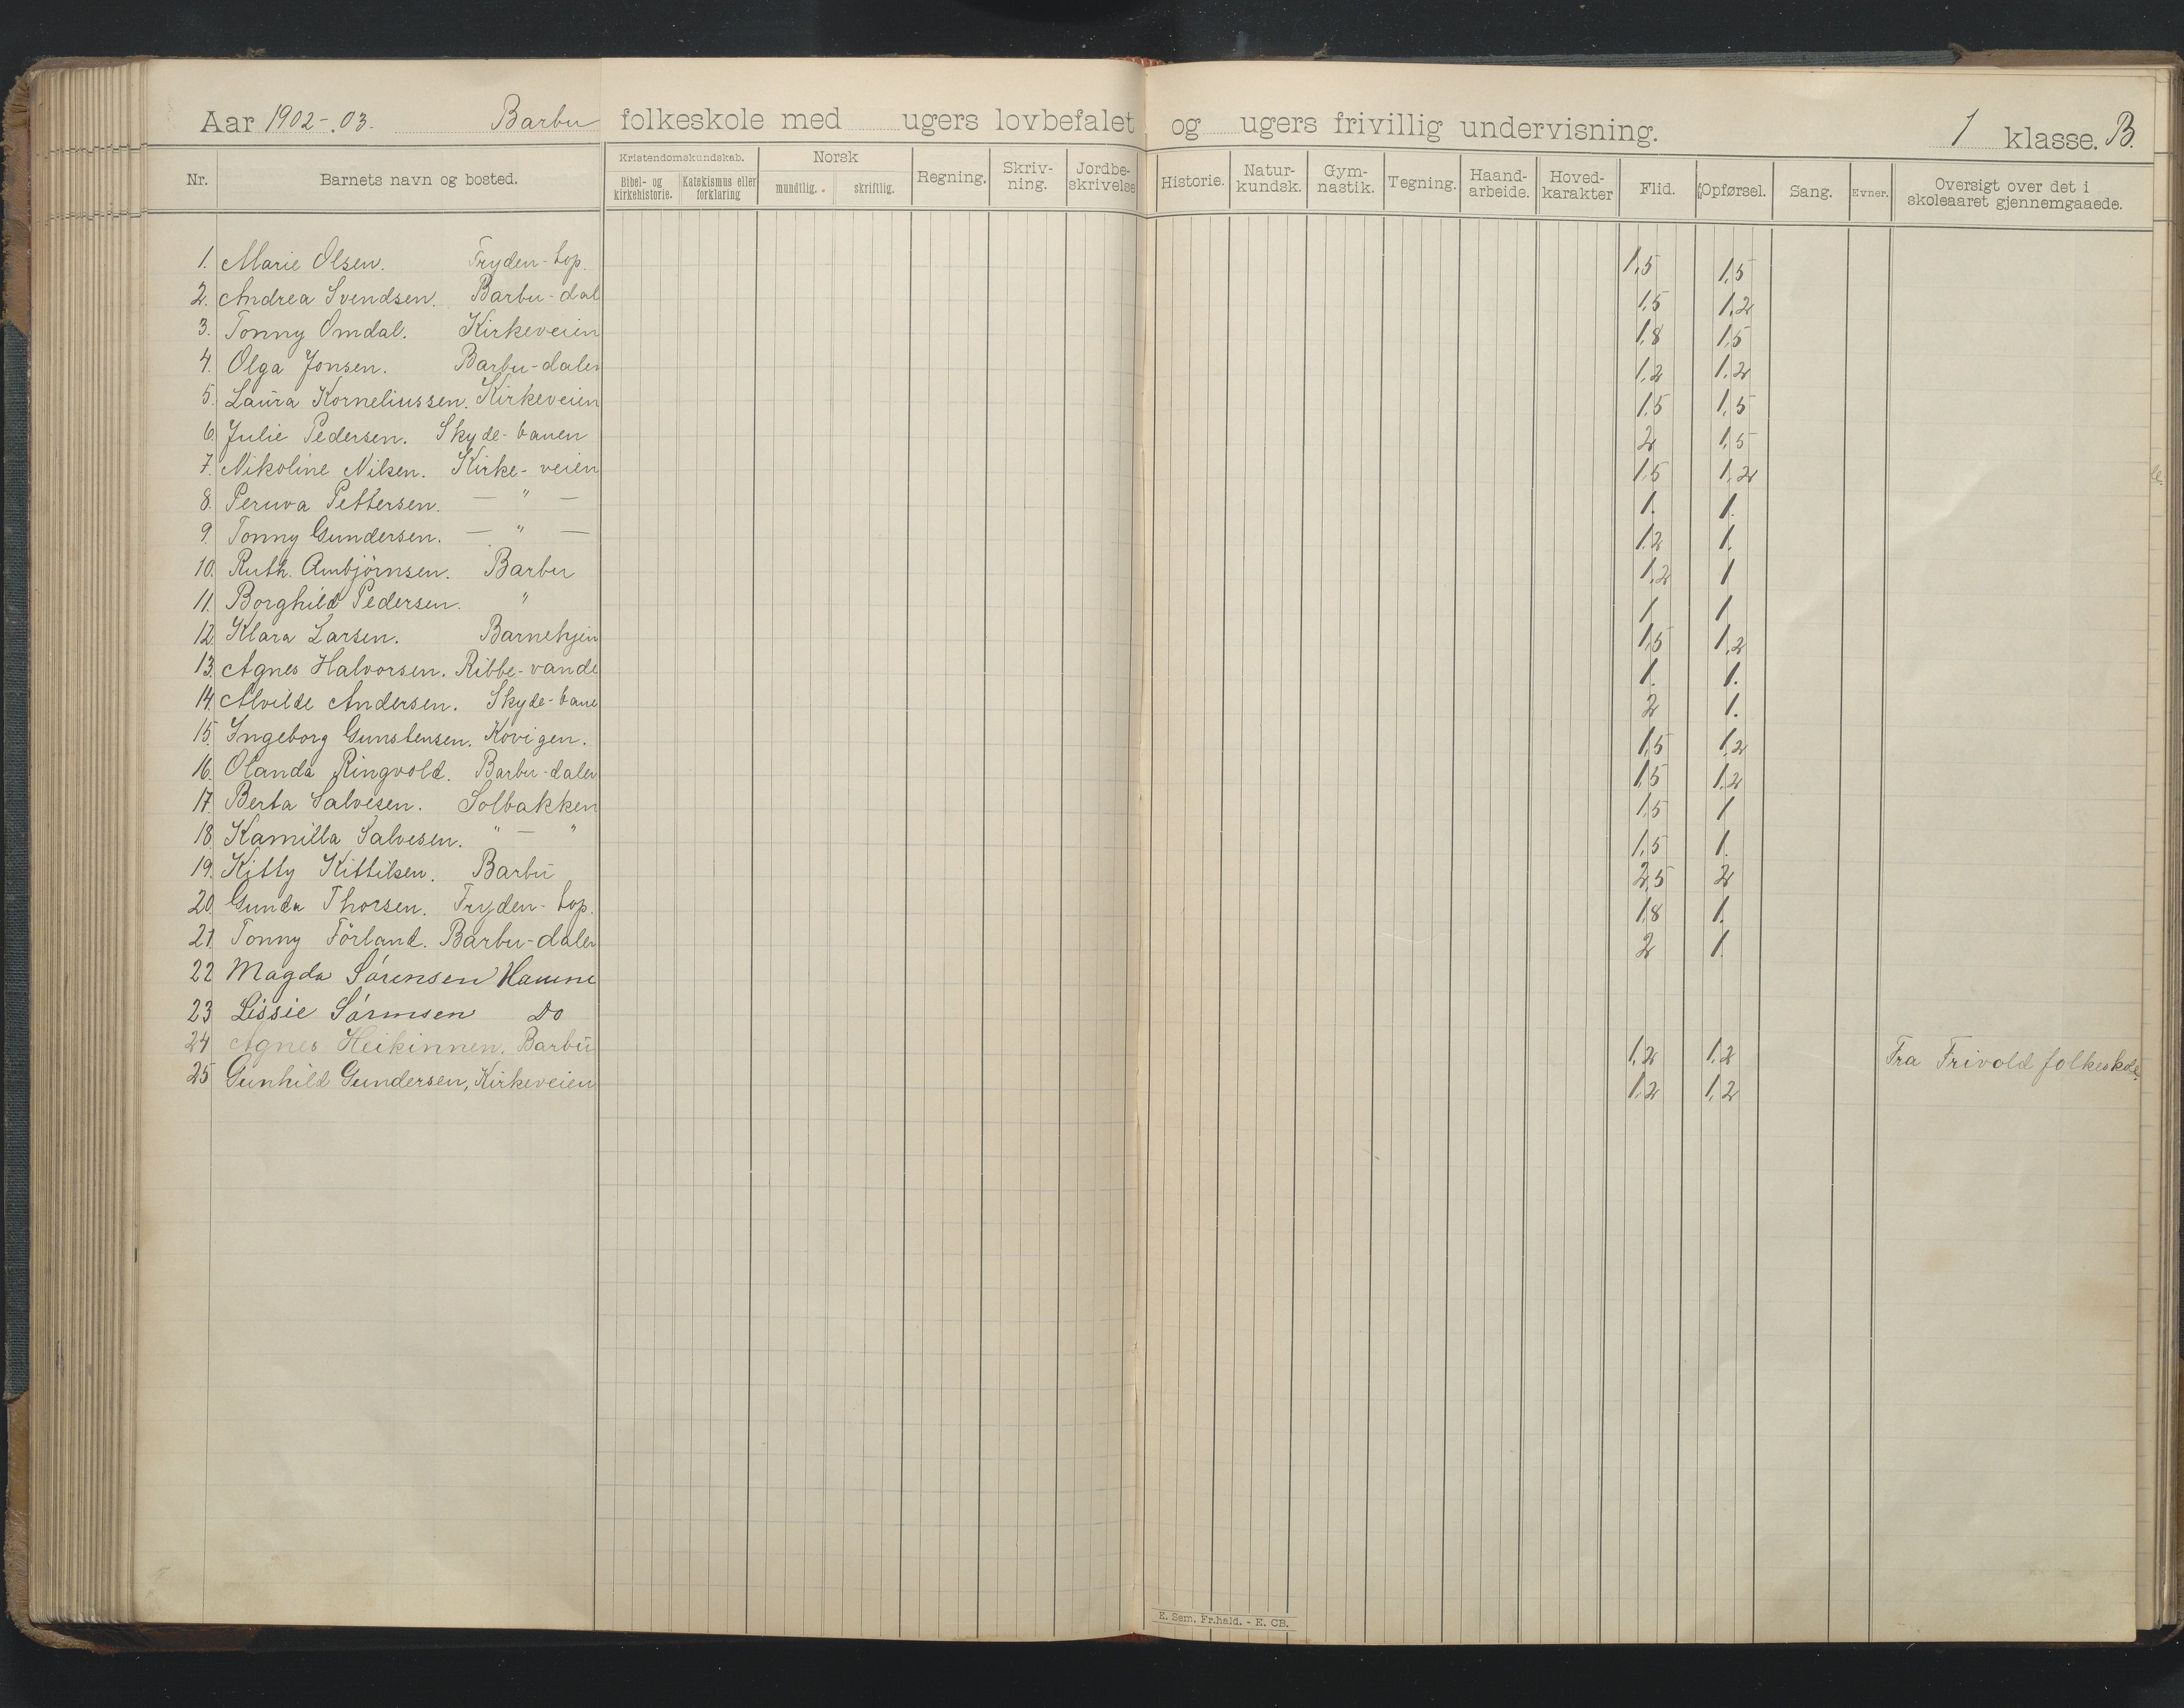 Aar 1902-03. Barbu folkeskole med ugers lovbefalet og ugers frivillig undervisning. 1 klasse. B.
Nr. Barnets navn og bosted. Kristendomskundskab. Bibel- og kirkehistorie. Katekismus eller forklaring Norsk mundtlig. skriftlig. Regning. Skriv-ning. Jordbe-skrivelse Historie. Natur-kundsk. Gym-nastik. Tegning. Haand-arbeide. Hoved-karakter Flid. Opførsel. Sang. Evner. Oversigt over det i skoleaaret gjennemgaaede.
1. Marie Olsen. Fryden-top. 1,5 1,5
2. Andrea Svendsen. Barbu-dal 1,5 1,2
3. Tonny Omdal. Kirkeveien 1,8 1,5
4. Olga Jonsen. Barbu-dalen 1,2 1,2
5. Laura Korneliussen. Kirkeveien 1,5 1,5
6. Julie Pedersen. Skyde-banen 2 1,5
7. Nikoline Nilsen. Kirke-veien 1,5 1,2
8. Peruva Pettersen. — " — 1. 1.
9. Tonny Gundersen. — " — 1,2 1.
10. Ruth. Ambjörnsen. Barbu 1,2 1
11. Borghild Pedersen. " 1 1
12. Klara Larsen. Barnehjem 1,5 1,2
13. Agnes Halvorsen. Ribbe-vande 1. 1.
14. Alvilde Andersen. Skyde-bane 2 1.
15. Ingeborg Gunstensen. Kovigen. 1,5 1,2
16. Olanda Ringvold. Barbu-dalen 1,5 1,2
17. Berta Salvesen. Solbakken 1,5 1
18. Kamilla Salvesen. " — " 1,5 1.
19. Kitty Kittilsen. Barbu 2,5 2
20. Gunda Thorsen. Fryden-top. 1,8 1.
21. Tonny Förland. Barbu-dalen 2 1.
22 Magda Sørensen
23 Lissie Sørensen Do
24 Agnes Heikinnen. Barbu 1,2 1,2 Fra Frivold folkeskole.
25 Gunhild Gundersen, Kirkeveien 1,2 1,2
E. Sem, Fr.hald. - E. CB.